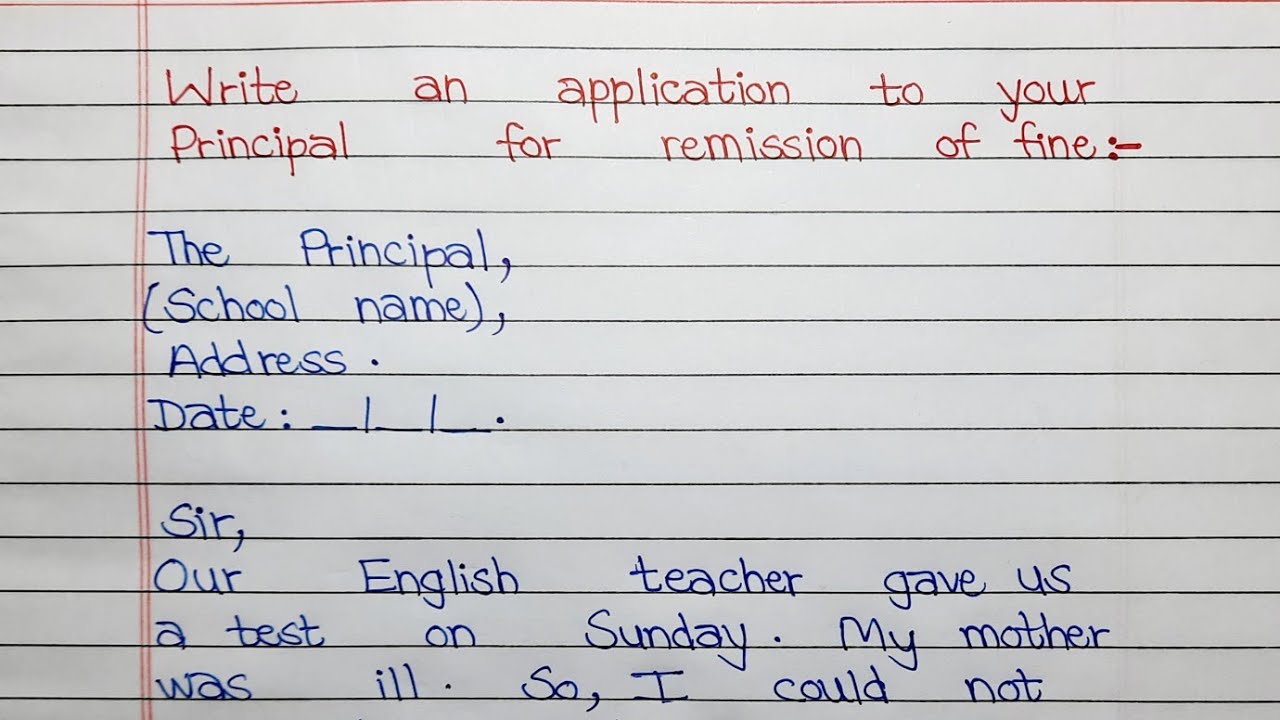 Write an application to your
Principal for remission of fine:-
The Principal,
(School name),
Address.
Date: __/__/__.
Sir,
Our English teacher gave us
a test on Sunday. My mother
was ill. So, I could not